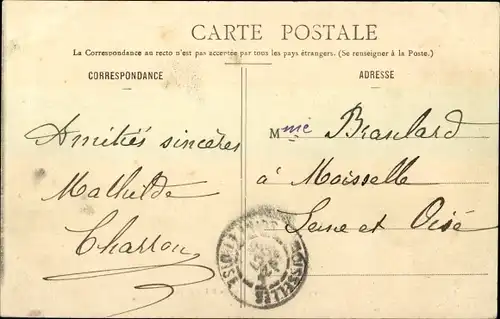 CARTE POSTALE
La Correspondance au recto n'est pas acceptée par tous les pays étrangers. (Se renseigner à la Poste.)
CORRESPONDANCE
ADRESSE
Amitiés sincères
Mathilde
Charron
Mme Braulard
à Moisselle
Seine et Oise